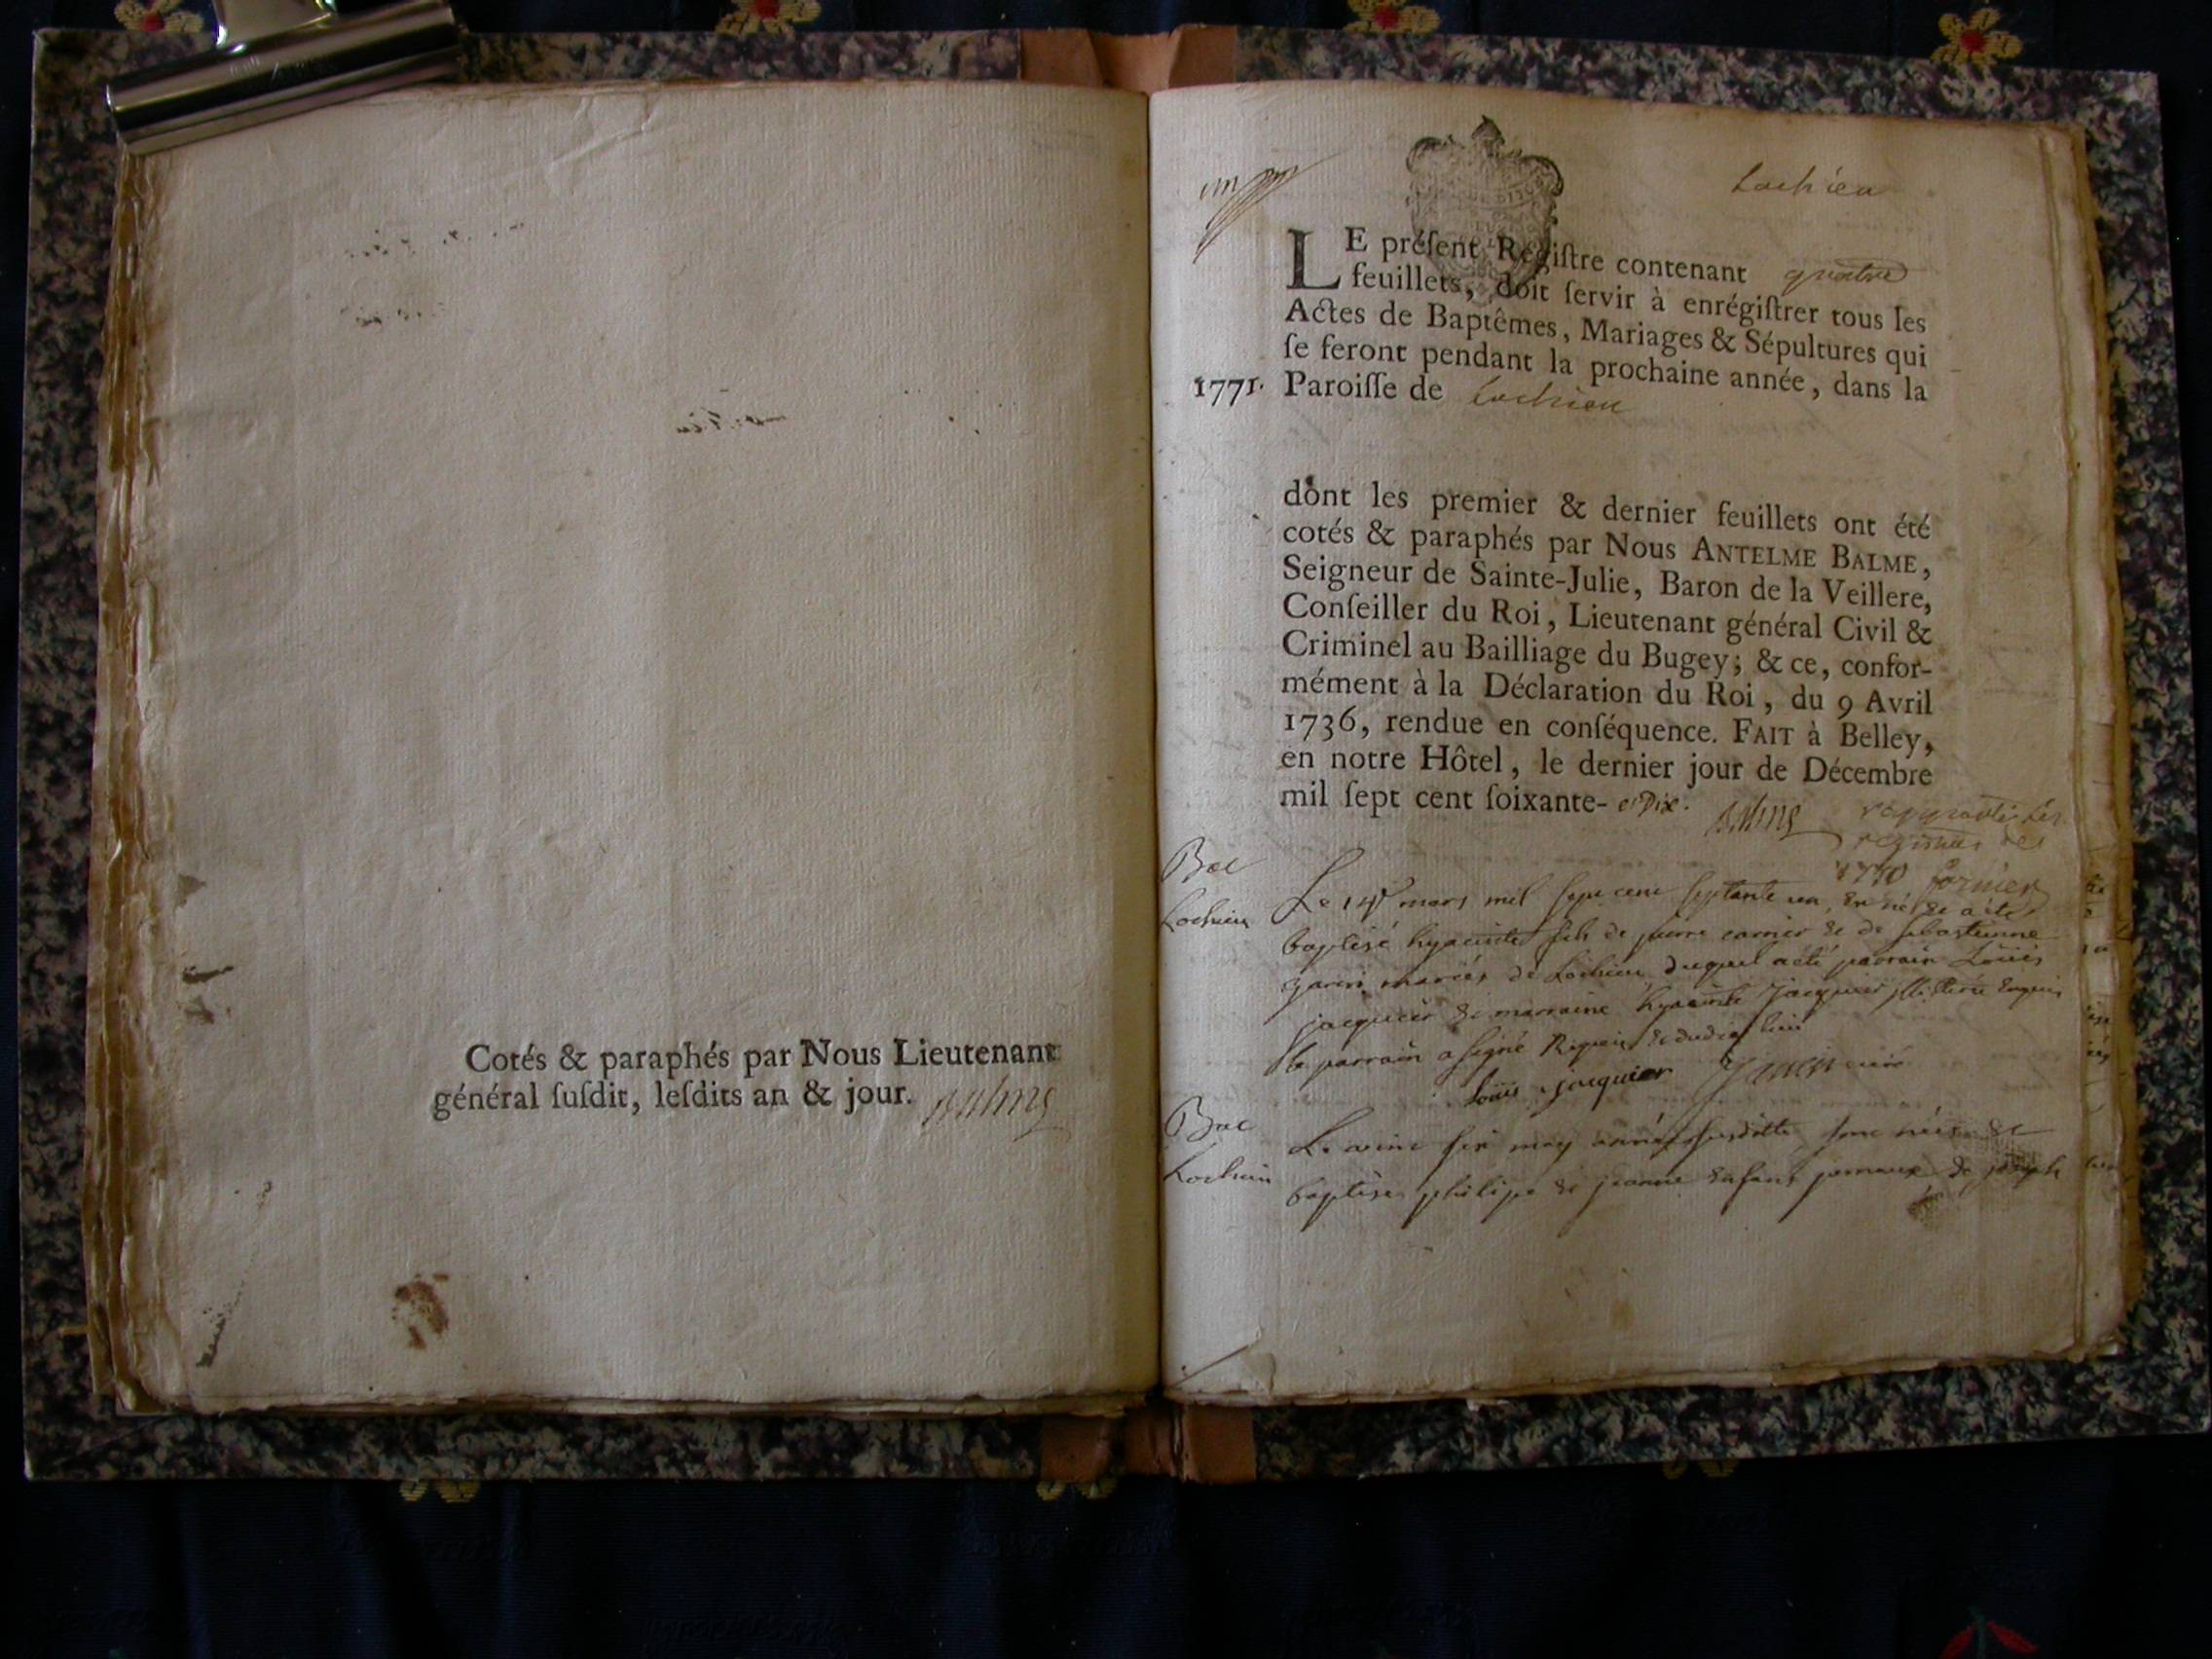 Cotés & paraphés par Nous Lieutenant
général ſuſdit, leſdits an & jour. Balme
Lochieu
LE préſent Regiſtre contenant quatre
feuillets, doit ſervir à enrégiſtrer tous les
Actes de Baptêmes, Mariages & Sépultures qui
ſe feront pendant la prochaine année, dans la
1771. Paroiſſe de Lochieu
dont les premier & dernier feuillets ont été
cotés & paraphés par Nous ANTELME BALME,
Seigneur de Sainte-Julie, Baron de la Veillere,
Conſeiller du Roi, Lieutenant général Civil &
Criminel au Bailliage du Bugey; & ce, confor-
mément à la Déclaration du Roi, du 9 Avril
1736, rendue en conſéquence. FAIT à Belley,
en notre Hôtel, le dernier jour de Décembre
mil ſept cent ſoixante- et Dix. Balme
registres des
1770
Lochieu
Le mars mil sept cent septante un, est né & a été
baptisé hyacinte fils de pierre carrier & de sebastienne
garin mariés de Lochieu duquel a été parrain Louis
jacquier & marraine hyacinte jacquier
le parrain a signé Requis
Louis jacquier Janin curé
Lochieu
Le vint six may année susditte sont nés &
baptisés philipe & jeanne enfans jumeaux de joseph